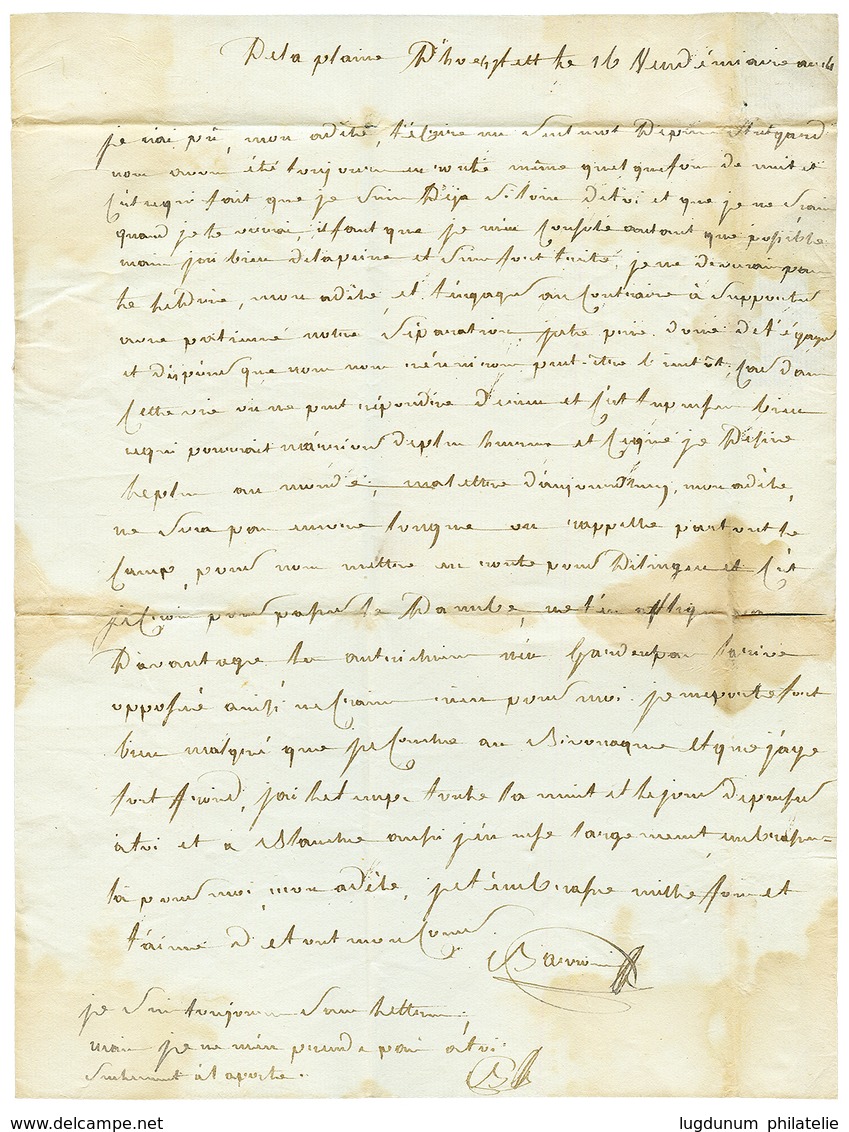 De la plaine D'hochstett le 16 Vendémiaire an 14
je n'ai pû, mon adéle, t'écrire un seul mot Depuis Stutgard
nous avons été toujours en route même quelquefois de nuit et
C'est ce qui fait que je suis Déja si loin de toi et que je ne sçais
quand je te verrai, il faut que je m'en Console autant que possible
mais j'ai bien de la peine et suis fort triste, je ne devrais pas
te le dire, mon adéle, et t'engager au Contraire à supporter
avec patience notre séparation, je te prie donc de t'égayer
et d'espérer que nous nous réunirons peut-être bientôt, Car dans
Cette vie on ne peut répondre de rien et C'est la penser bien
ce qui pourrait m'arriver de plus heureux et Ce que je Désire
le plus au monde, ma lettre d'aujourd'huy, mon adéle,
ne sera pas encore longue on rappelle par tout le
Camp, pour nous mettre en route pour Dilingen et C'est
je Crois pour passer le Danube, ne t'en afflige pas
Davantage les autrichiens n'en Gardent pas la rive
opposée ainsi ne Crains rien pour moi. je me porte fort
bien malgré que je Couche au Bivouaque et que j'aye
fort froid, j'ai le temps toute la nuit et le jour de penser
à toi et à Blanche aussi j'en use largement, embrasse-
la pour moi, mon adéle, je t'embrasse mille fois et
t'aime de tout mon Coeur.
je suis toujours sans lettres,
mais je ne m'en prends pas à toi
seulement à la poste.
lugdunum philatelie
www.delcampe.net